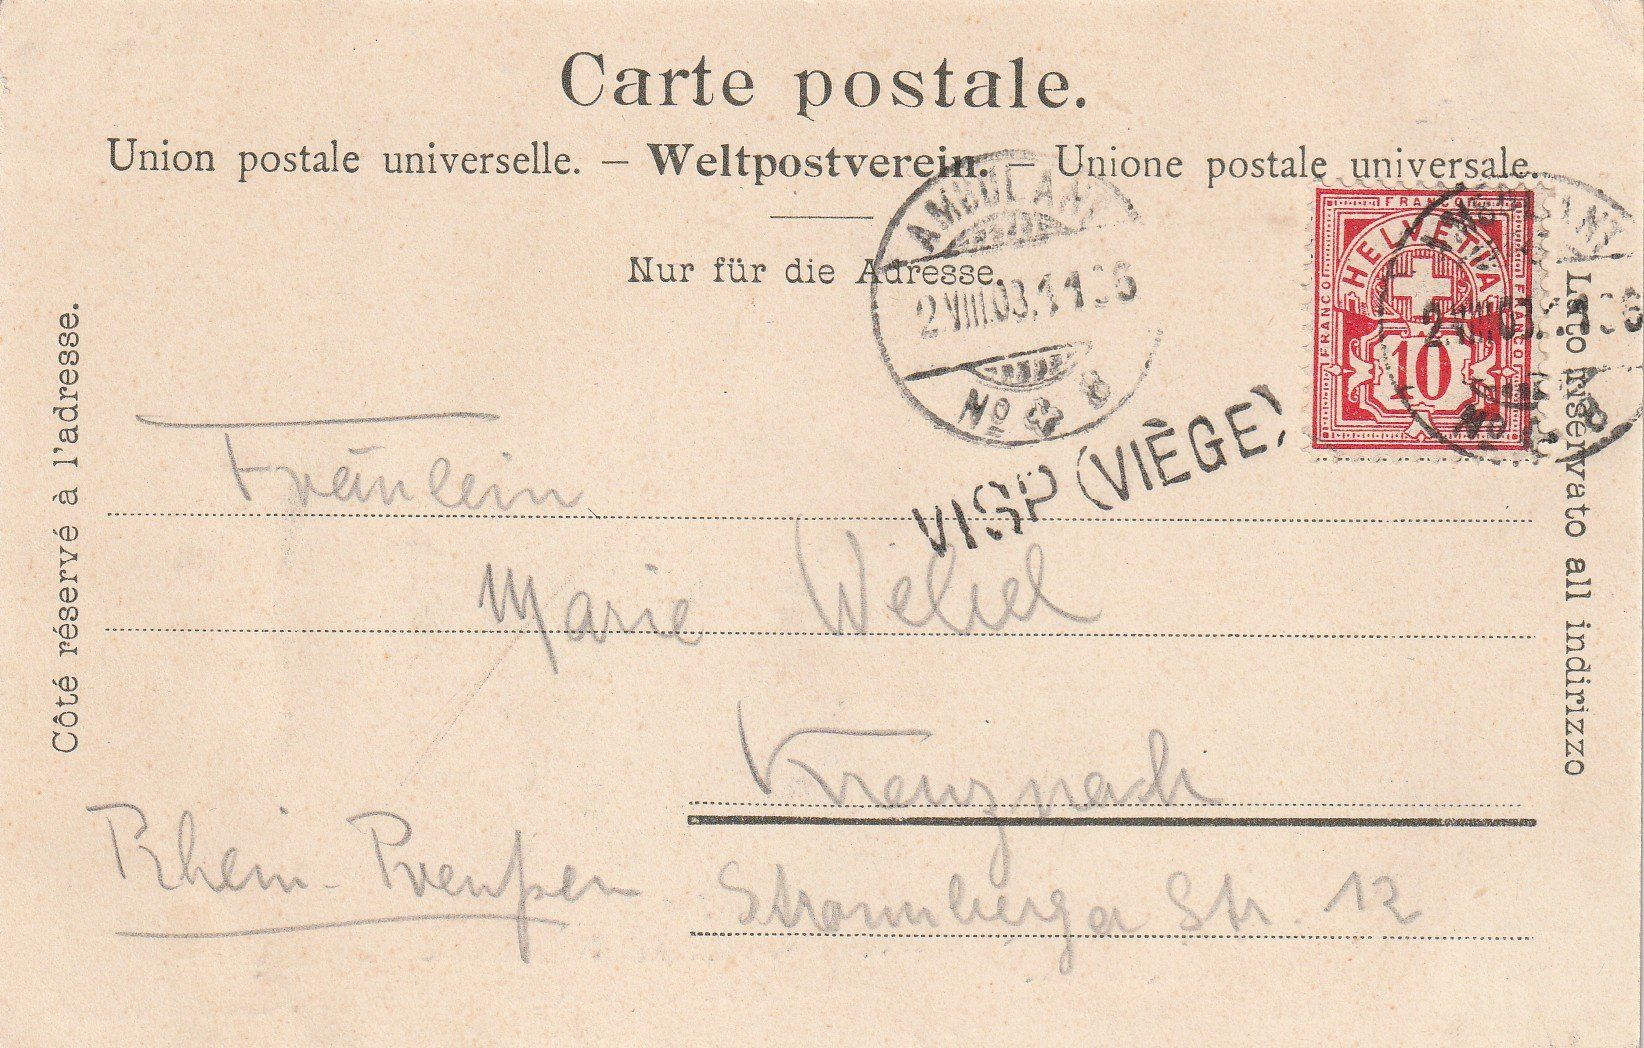 Carte postale.
Union postale universelle. – Weltpostverein. – Unione postale universale.
Nur für die Adresse.
Côté réservé à l'adresse.
Lato riservato all indirizzo
AMBULANT
2.VIII.03.
No 8
VISP (VIÈGE)
FRANCO
FRANCO
FRANCO
HELVETIA
10
AMBULANT
2.VIII.03.
No 8
Fräulein
Marie
Kreuznach
Rhein-Preußen
Stromberger Str. 12